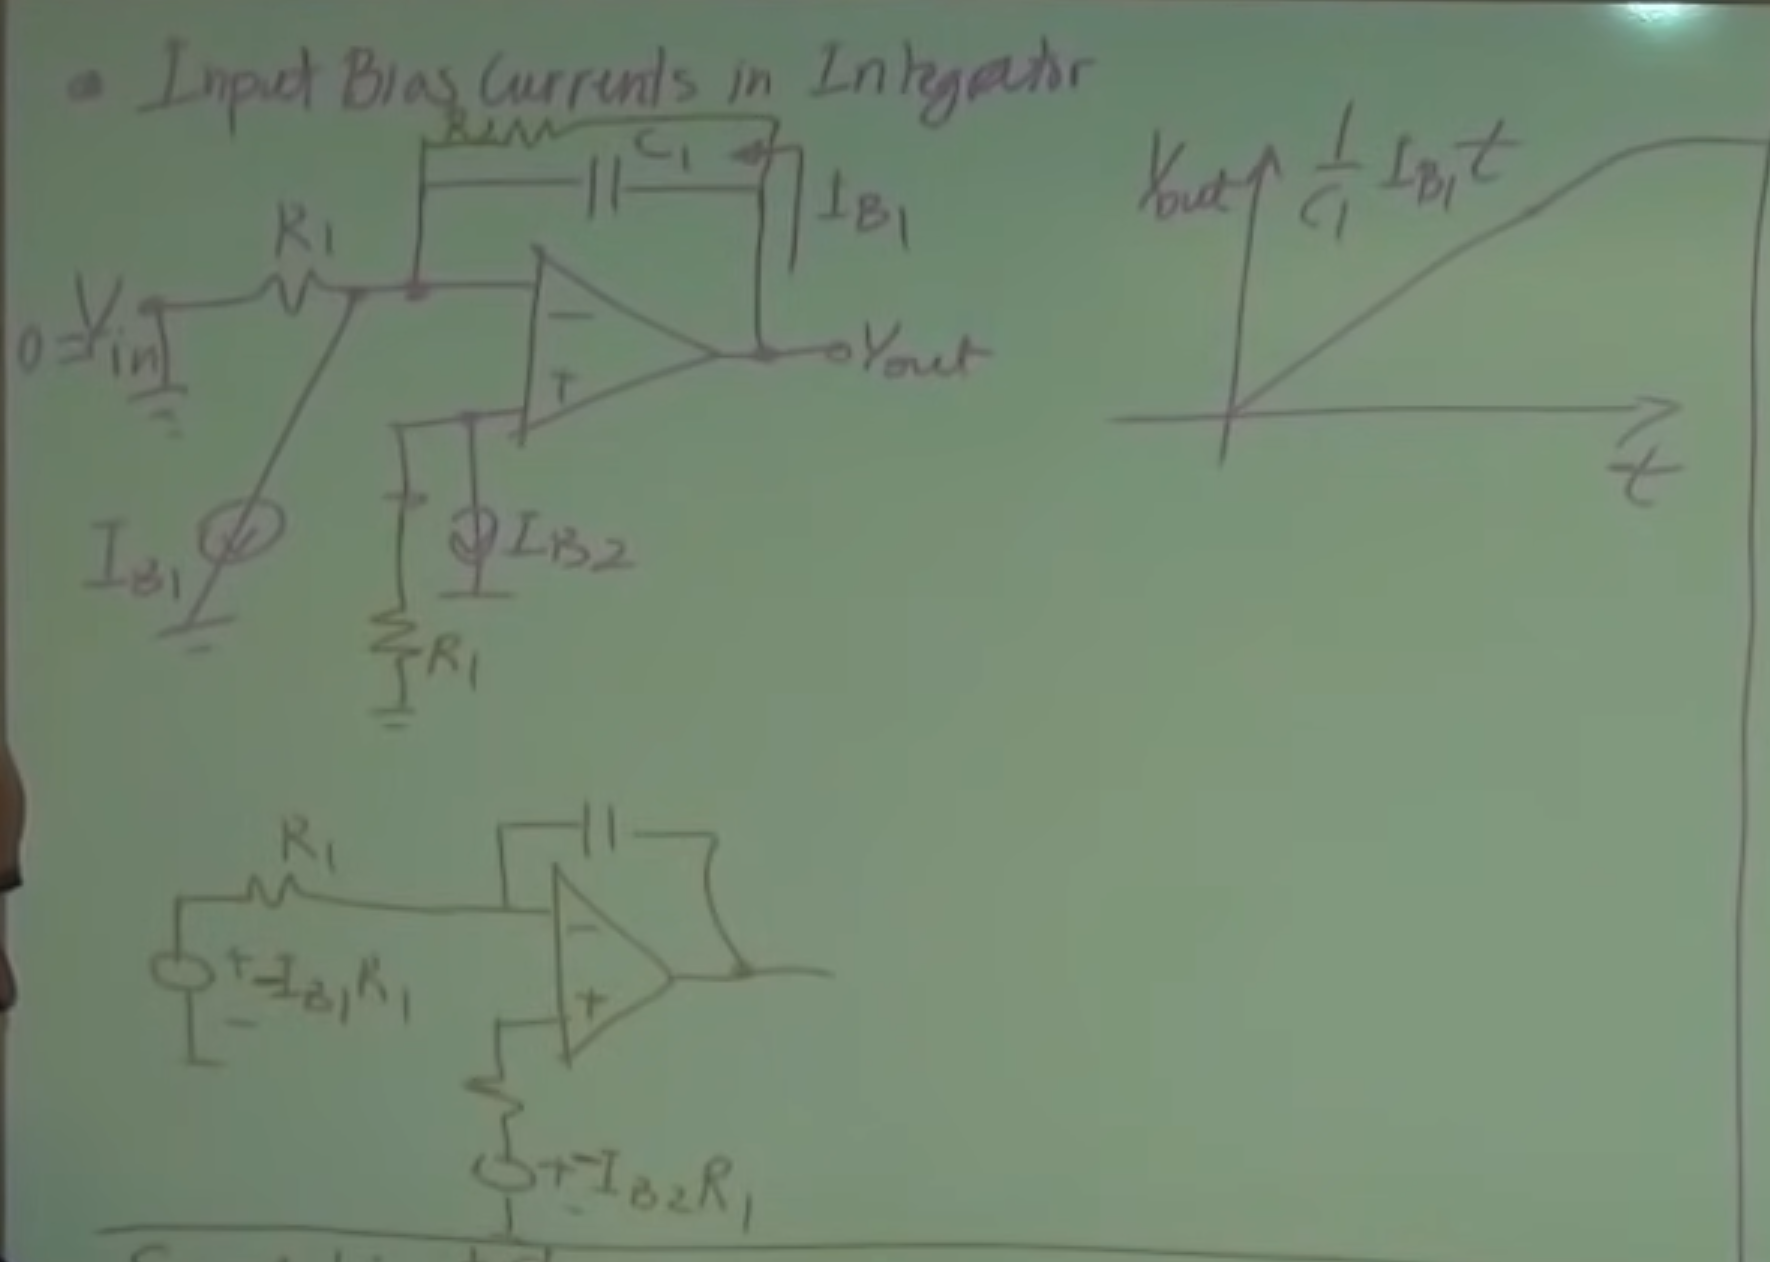 • Input Bias Currents in Integrator
R2
C1
IB1
R1
0 = Vin
−
+
Vout
IB1
IB2
R1
Vout
1/C1 IB1 t
t
R1
−
+
+
−IB1R1
−
+
−IB2R1
−